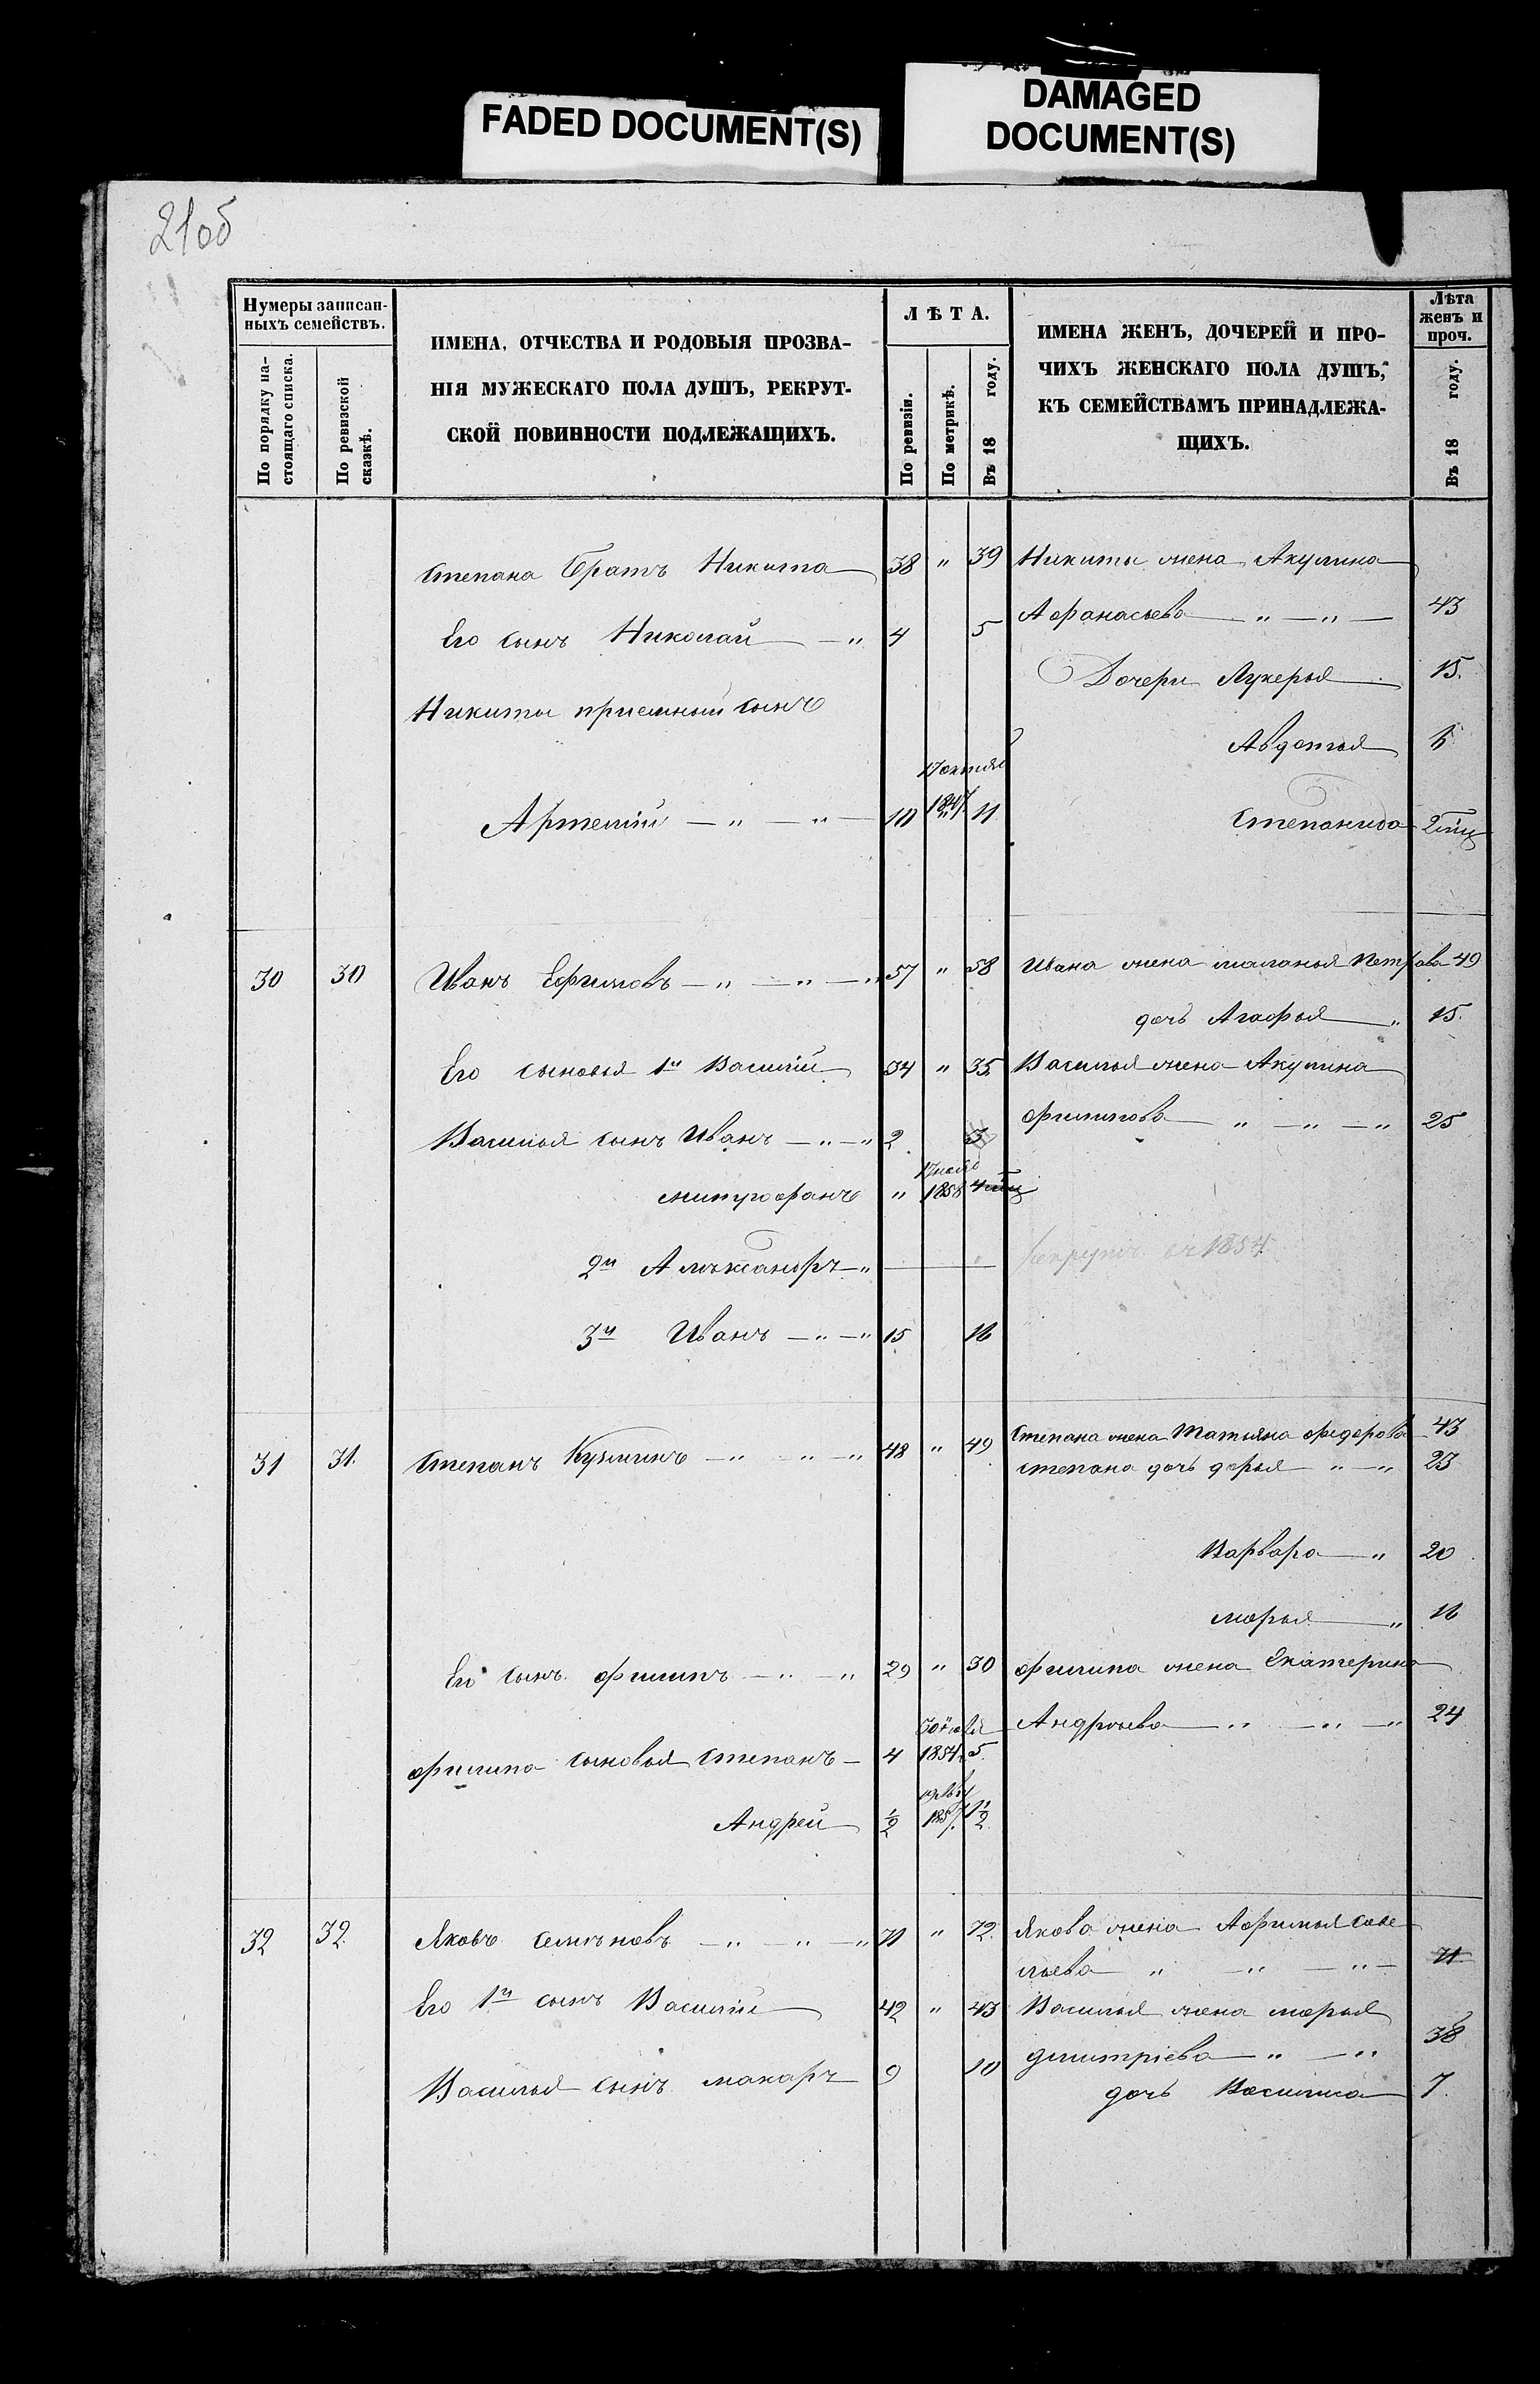 FADED DOCUMENT(S)
DAMAGED
DOCUMENT(S)
21об
Нумеры записан-
ныхъ семействъ.
По порядку на-
стоящаго списка.
По ревизской
сказкѣ.
ИМЕНА, ОТЧЕСТВА И РОДОВЫЯ ПРОЗВА-
НІЯ МУЖЕСКАГО ПОЛА ДУШЪ, РЕКРУТ-
СКОЙ ПОВИННОСТИ ПОДЛЕЖАЩИХЪ.
ЛѢТА.
По ревизіи.
По метрикѣ.
Въ 18 году.
ИМЕНА ЖЕНЪ, ДОЧЕРЕЙ И ПРО-
ЧИХЪ ЖЕНСКАГО ПОЛА ДУШЪ,
КЪ СЕМЕЙСТВАМЪ ПРИНАДЛЕЖА-
ЩИХЪ.
Лѣта
женъ и
проч.
Въ 18 году.
Степана братъ Никита 38 " 39 Никиты жена Акулина
Афанасьева — " — " — 43
Его сынъ Николай — " 4 5
Дочери Лукерья 15.
Никиты приемный сынъ
Авдотья 6
17 октяб
Артемій — " — " — 10 1847 11
Степанида 2 мц
30 30 Иванъ Ефимовъ — " — " — " 57 " 58 Ивана жена маланья Петрова 49
дочь Агафья — " 15.
Его сыновья 1й Василій 34 " 35 Василья жена Акулина
филипова — " — " — " 25
Василья сынъ Иванъ — " — " 2 3
митрофанъ " 1858 4 мц
2й Алѣксандръ — " — " рекрутъ въ 1854
3й Иванъ — " — " 15 16
31 31. Степанъ Кузминъ — " — " — " 48 " 49 Степана жена Татьяна федорова 43
степана дочь дарья — " — " 23
Варвара — " 20
марья — " 16
Его сынъ филипъ — " — " 29 " 30 филипа жена Екатерина
Андрѣева — " — " — " 24
филипа сыновья Степанъ — 4 1854 5
Андрей 1/2 1857. 1 1/2
32 32. Яковъ семѣновъ — " — " — " 71 " 72. Якова жена Афимья саве
льева — " — " — " — 71
Его 1й сынъ Василій 42 " 43 Василья жена марья
дмитріева — " — " 38
Василья сынъ макаръ 9 10
дочь Василиса 7.